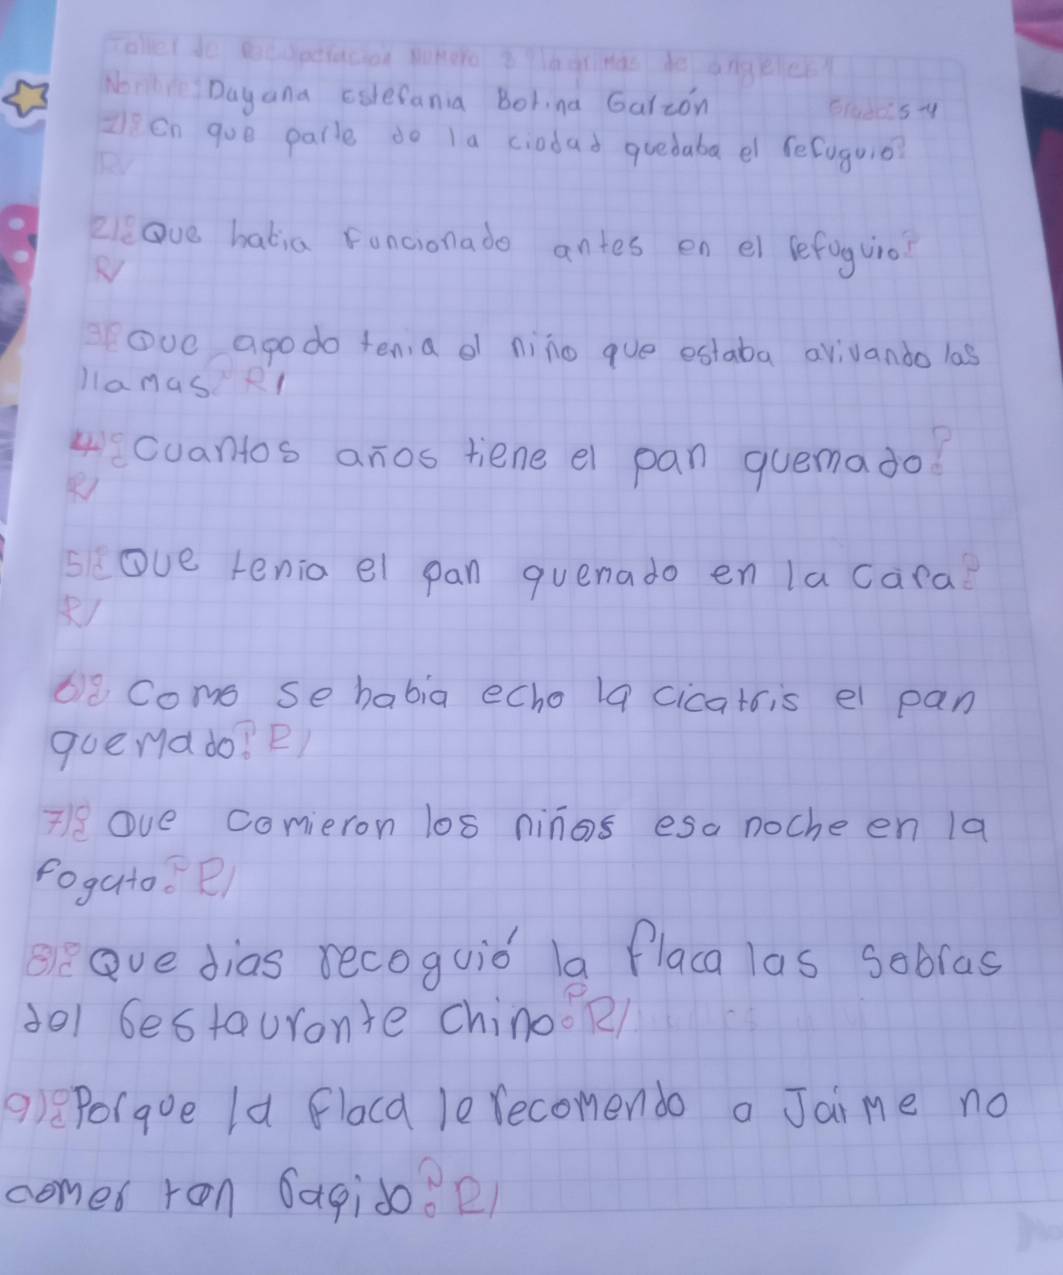 Taller de número 2 "lagrimas de angeles"
Nombre: Dayana estefania Botina Garzón Grado: 5-4
1)¿En que parte de la ciodad quedaba el refuguio?
R/
2)¿Que habia funcionado antes en el refuguio?
R/
3)¿Que apodo tenia el niño que estaba avivando las
llamas? R/
4)¿Cuantos años tiene el pan quemado?
R/
5)¿Que tenia el pan quemado en la cara?
R/
6)¿Como se habia echo la cicatris el pan
quemado? R/
7)¿Que comieron los niños esa noche en la
fogata? R/
8)¿Que dias recoguió la flaca las sobras
del restaurante chino? R/
9)¿Porque la flaca le recomendo a Jaime no
comer tan rapido? R/